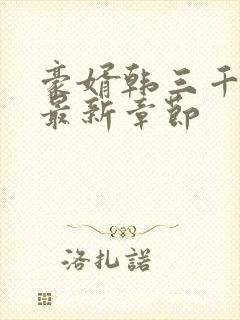 豪婿韩三千
最新章节
洛扎諾